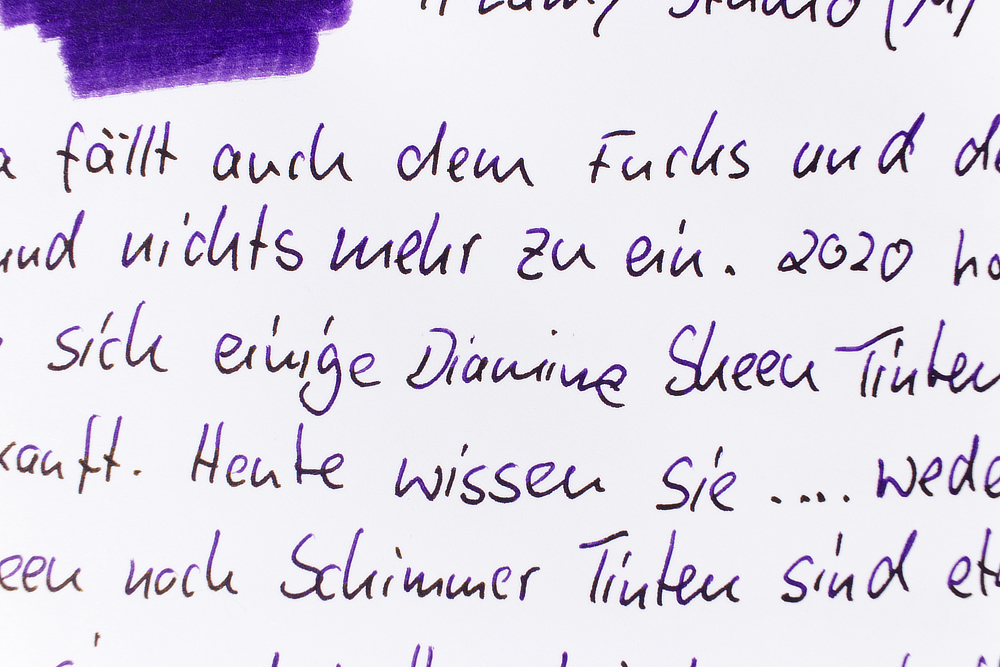 Lamy Studio (M)
fällt auch dem Fuchs und
und nichts mehr zu ein. 2020
sich einige Diamine Sheen Tinten
kauft. Heute wissen sie .... wede
een noch Schimmer Tinten sind